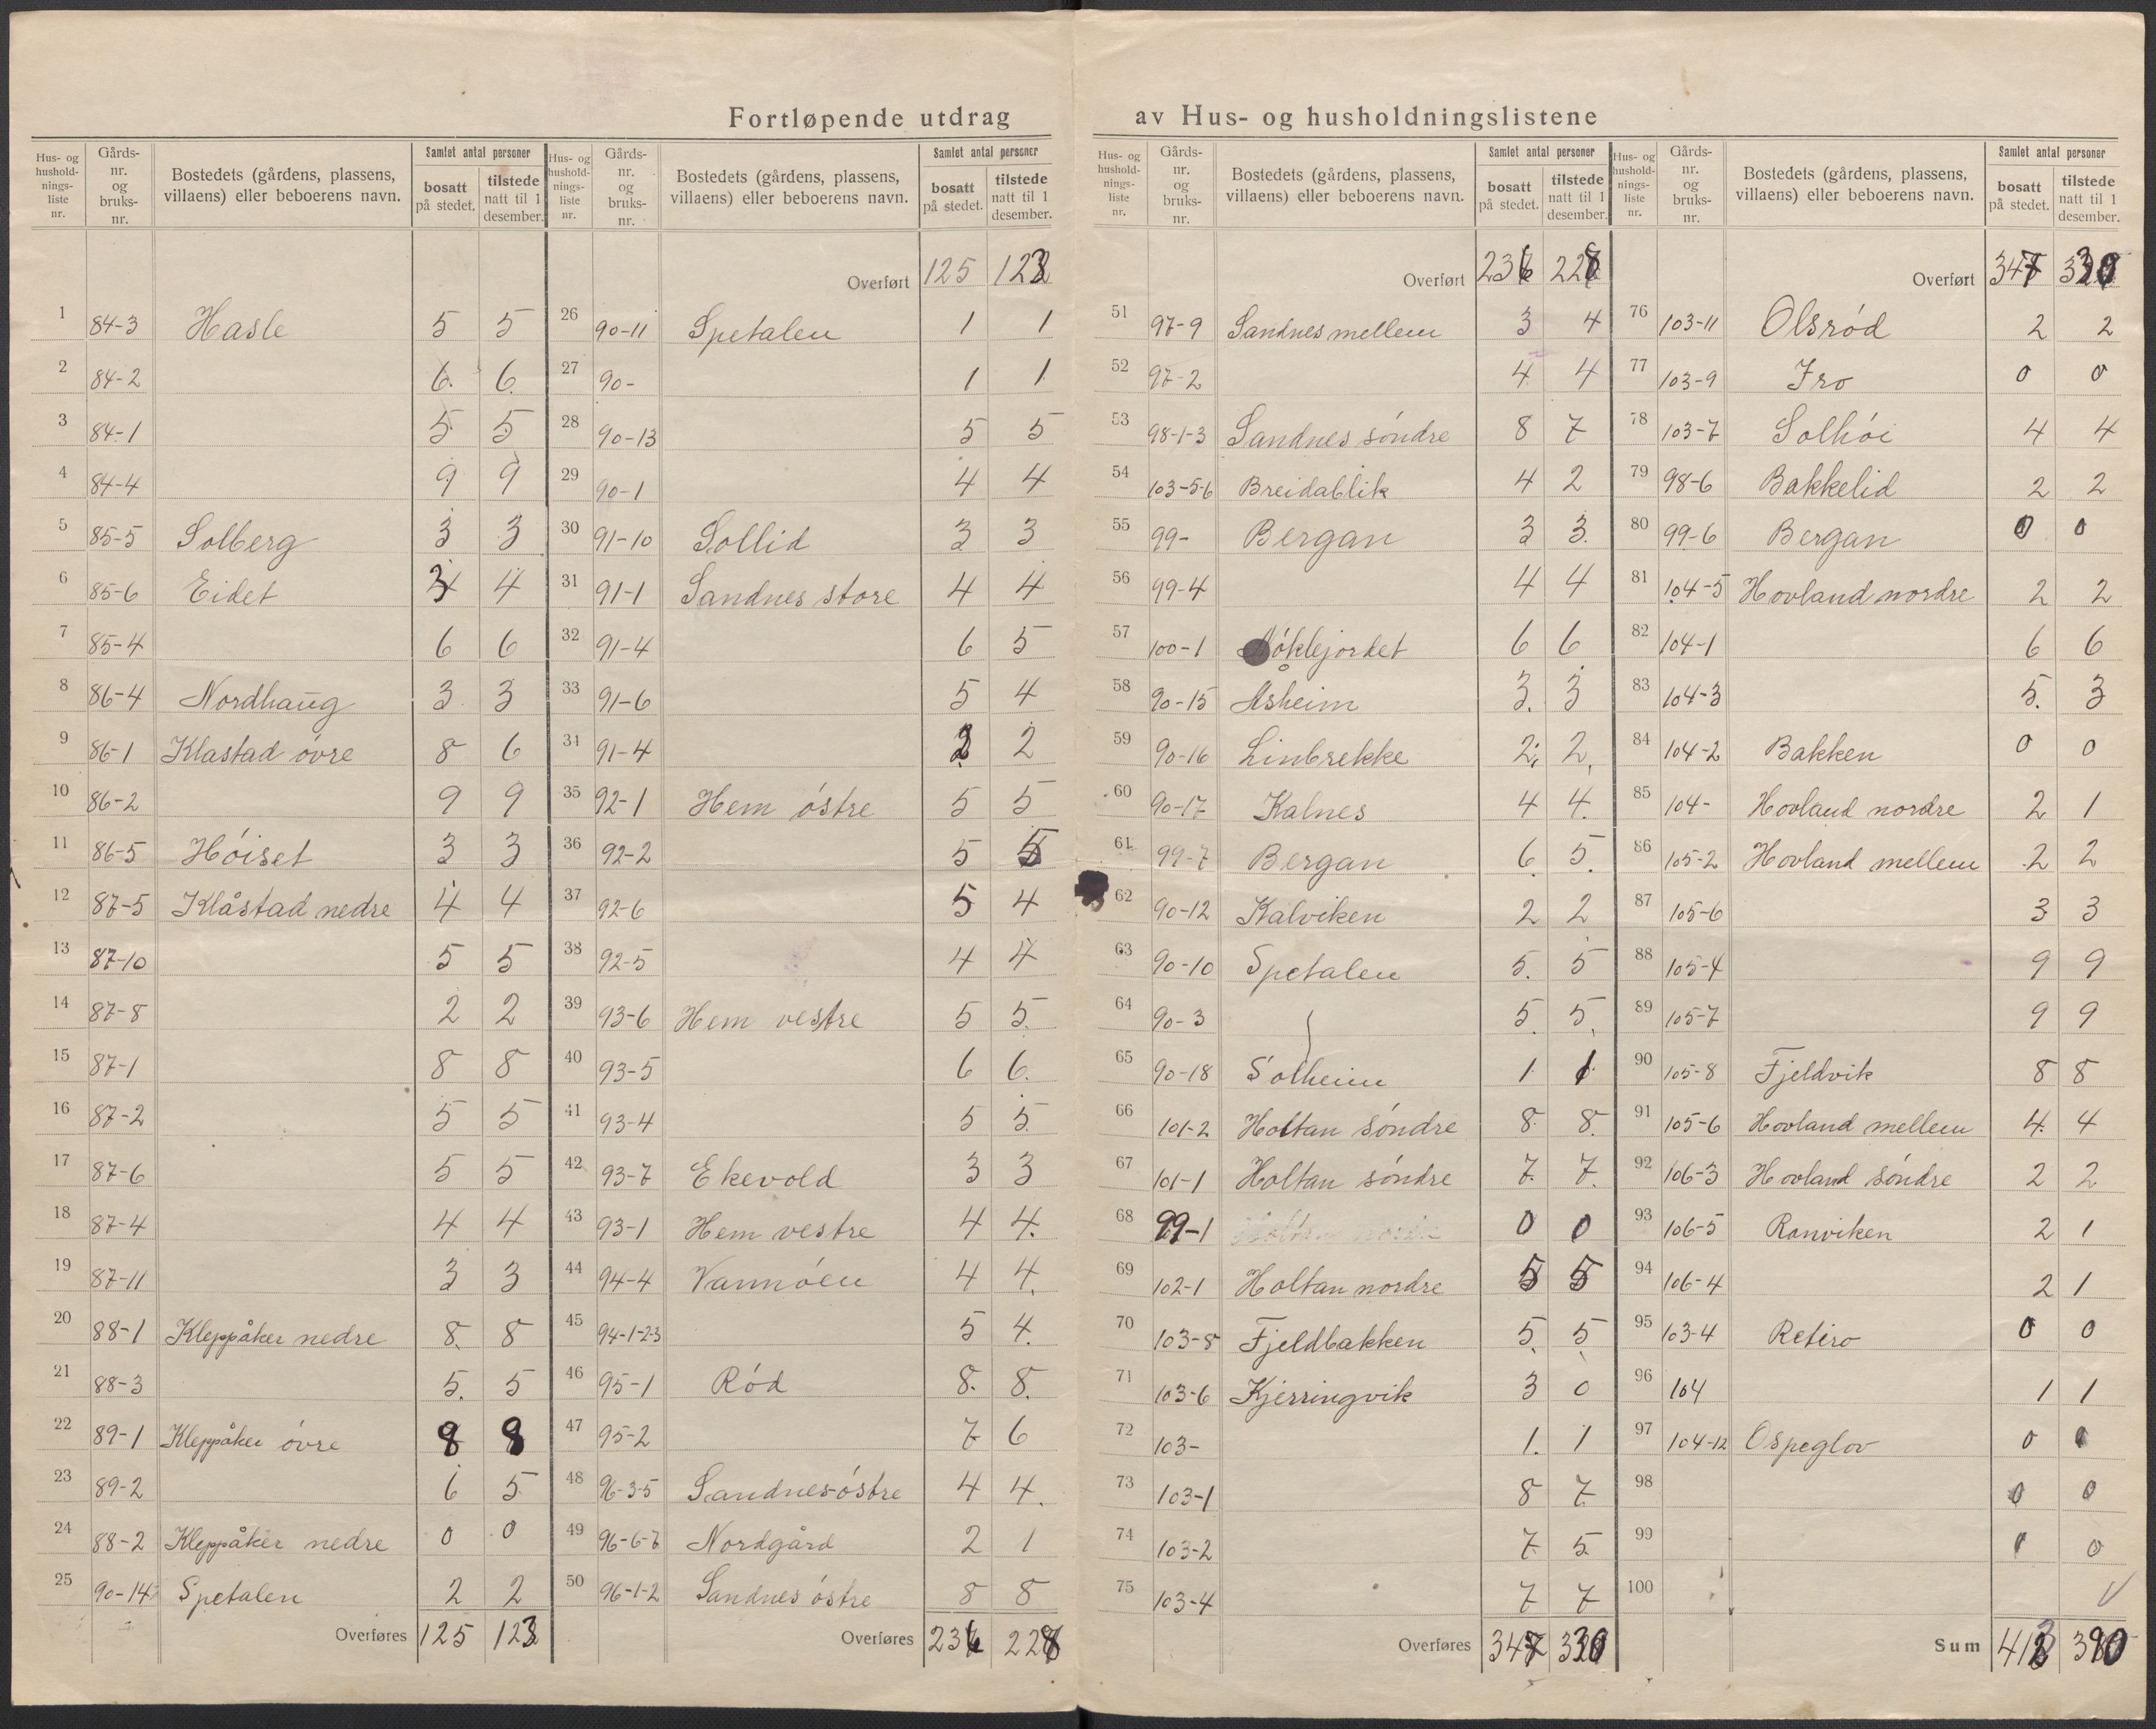 Fortløpende utdrag av Hus- og husholdningslistene
Hus- og hushold-nings-liste nr. | Gårds-nr. og bruks-nr. | Bostedets (gårdens, plassens, villaens) eller beboerens navn. | Samlet antal personer | bosatt på stedet. | tilstede natt til 1 desember.
1 84-3 Hasle 5 5
2 84-2 6. 6
3 84-1 5 5
4 84-4 9 9
5 85-5 Solberg 3 3
6 85-6 Eidet 4
7 85-4 6 6
8 86-4 Nordhaug 3 3
9 86-1 Klastad óvre 8 6
10 86-2 9 9
11 86-5 Hóiset 3 3
12 87-5 Klåstad nedre 4 4
13 87-10 5 5
14 87-8 2 2
15 87-1 8 8
16 87-2 5 5
17 87-6 5 5
18 87-4 4 4
19 87-11 3 3
20 88-1 Kleppåker nedre 8. 8
21 88-3 5. 5
22 89-1 Kleppåker óvre 8 8
23 89-2 6 5
24 88-2 Kleppåker nedre 0 0
25 90-14 Spetalen 2 2
Overføres 125 123
Hus- og hushold-nings-liste nr. | Gårds-nr. og bruks-nr. | Bostedets (gårdens, plassens, villaens) eller beboerens navn. | Samlet antal personer | bosatt på stedet. | tilstede natt til 1 desember.
Overført 125 123
26 90-11 Spetalen 1 1
27 90- 1 1
28 90-13 5 5
29 90-1 4 4
30 91-10 Sollid 3 3
31 91-1 Sandnes store 4 4
32 91-4 6 5
33 91-6 5 4
34 91-4 2 2
35 92-1 Hem óstre 5 5
36 92-2 5 5
37 92-6 5 4
38 92-5 4 4
39 93-6 Hem vestre 5 5
40 93-5 6 6.
41 93-4 5 5
42 93-7 Ekevold 3 3
43 93-1 Hem vestre 4 4.
44 94-4 Vannóen 4 4.
45 94-1-2-3 5 4.
46 95-1 Ród 8. 8.
47 95-2 7 6
48 96-3-5 Sandnes óstre 4 4.
49 96-6-7 Nordgård 2 1
50 96-1-2 Sandnes óstre 8 8
Overføres 236 228
Hus- og hushold-nings-liste nr. | Gårds-nr. og bruks-nr. | Bostedets (gårdens, plassens, villaens) eller beboerens navn. | Samlet antal personer | bosatt på stedet. | tilstede natt til 1 desember.
Overført 236 228
51 97-9 Sandnes mellem 3 4
52 97-2 4 4
53 98-1-3 Sandnes sóndre 8 7
54 103-5-6 Breidablik 4 2
55 99- Bergan 3 3.
56 99-4 4 4
57 100-1 6 6
58 90-15 Åsheim 3. 3
59 90-16 Linbrekke 2. 2.
60 90-17 Kalnes 4 4.
61 99-7 Bergan 6. 5.
62 90-12 Kalviken 2 2
63 90-10 Spetalen 5. 5
64 90-3 5. 5.
65 90-18 Solheim 1 1
66 101-2 Holtan sóndre 8. 8.
67 101-1 Holtan sóndre 7. 7.
68 99-1 0 0
69 102-1 Holtan nordre 5 5
70 103-8 Fjeldbakken 5. 5
71 103-6 Kjerringvik 3 0
72 103- 1. 1
73 103-1 8 7
74 103-2 7 5
75 103-4 7 7
Overføres 347 330
Hus- og hushold-nings-liste nr. | Gårds-nr. og bruks-nr. | Bostedets (gårdens, plassens, villaens) eller beboerens navn. | Samlet antal personer | bosatt på stedet. | tilstede natt til 1 desember.
Overført 347 330
76 103-11 Olsród 2 2
77 103-9 Fro 0 0
78 103-7 Solhói 4 4
79 98-6 Bakkelid 2 2
80 99-6 Bergan 0 0
81 104-5 Hovland nordre 2 2
82 104-1 6 6
83 104-3 5. 3
84 104-2 Bakken 0 0
85 104- Hovland nordre 2 1
86 105-2 Hovland mellem 2 2
87 105-6 3 3
88 105-4 9 9
89 105-7 9 9
90 105-8 Fjeldvik 8 8
91 105-6 Hovland mellem 4. 4
92 106-3 Hovland sóndre 2 2
93 106-5 Ranviken 2 1
94 106-4 2 1
95 103-4 Retiro 0 0
96 104 1 1
97 104-12 Ospeglov 0 0
98 0 0
99 0
100
Sum 390